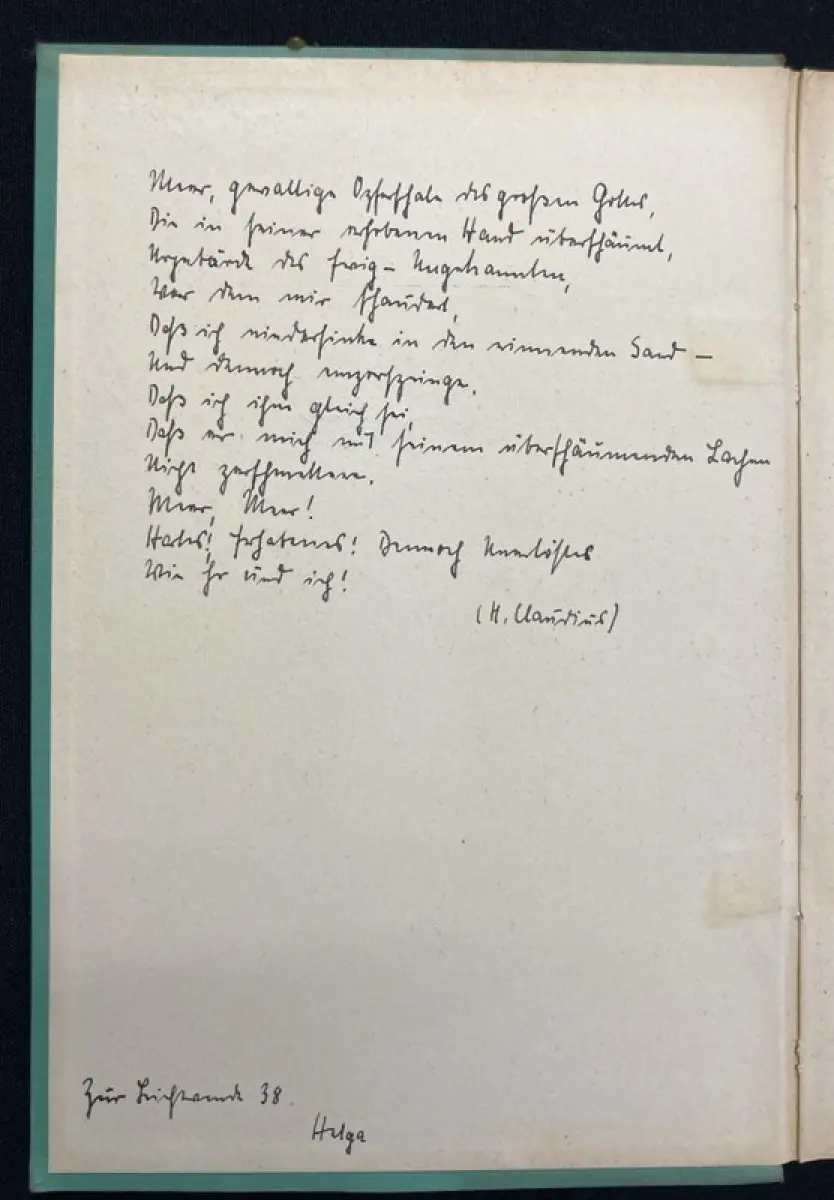 Meer, gewaltige Opferschale des großen Gottes,
Die in seiner erhobenen Hand überschäumt,
Urgebärde des Ewig-Ungekannten,
Vor dem mir schaudert,
Daß ich niedersinke in den rinnenden Sand –
Und dennoch emporspringe,
Daß ich ihm gleich sei,
Daß er mich mit seinem überschäumenden Lachen
Nicht zerschmettere.
Meer, Meer!
Hohes! Erhabenes! Dennoch Unerlöstes
Wie Ihr und ich!
(H. Claudius)
Zur Lichtwende 38.
Helga